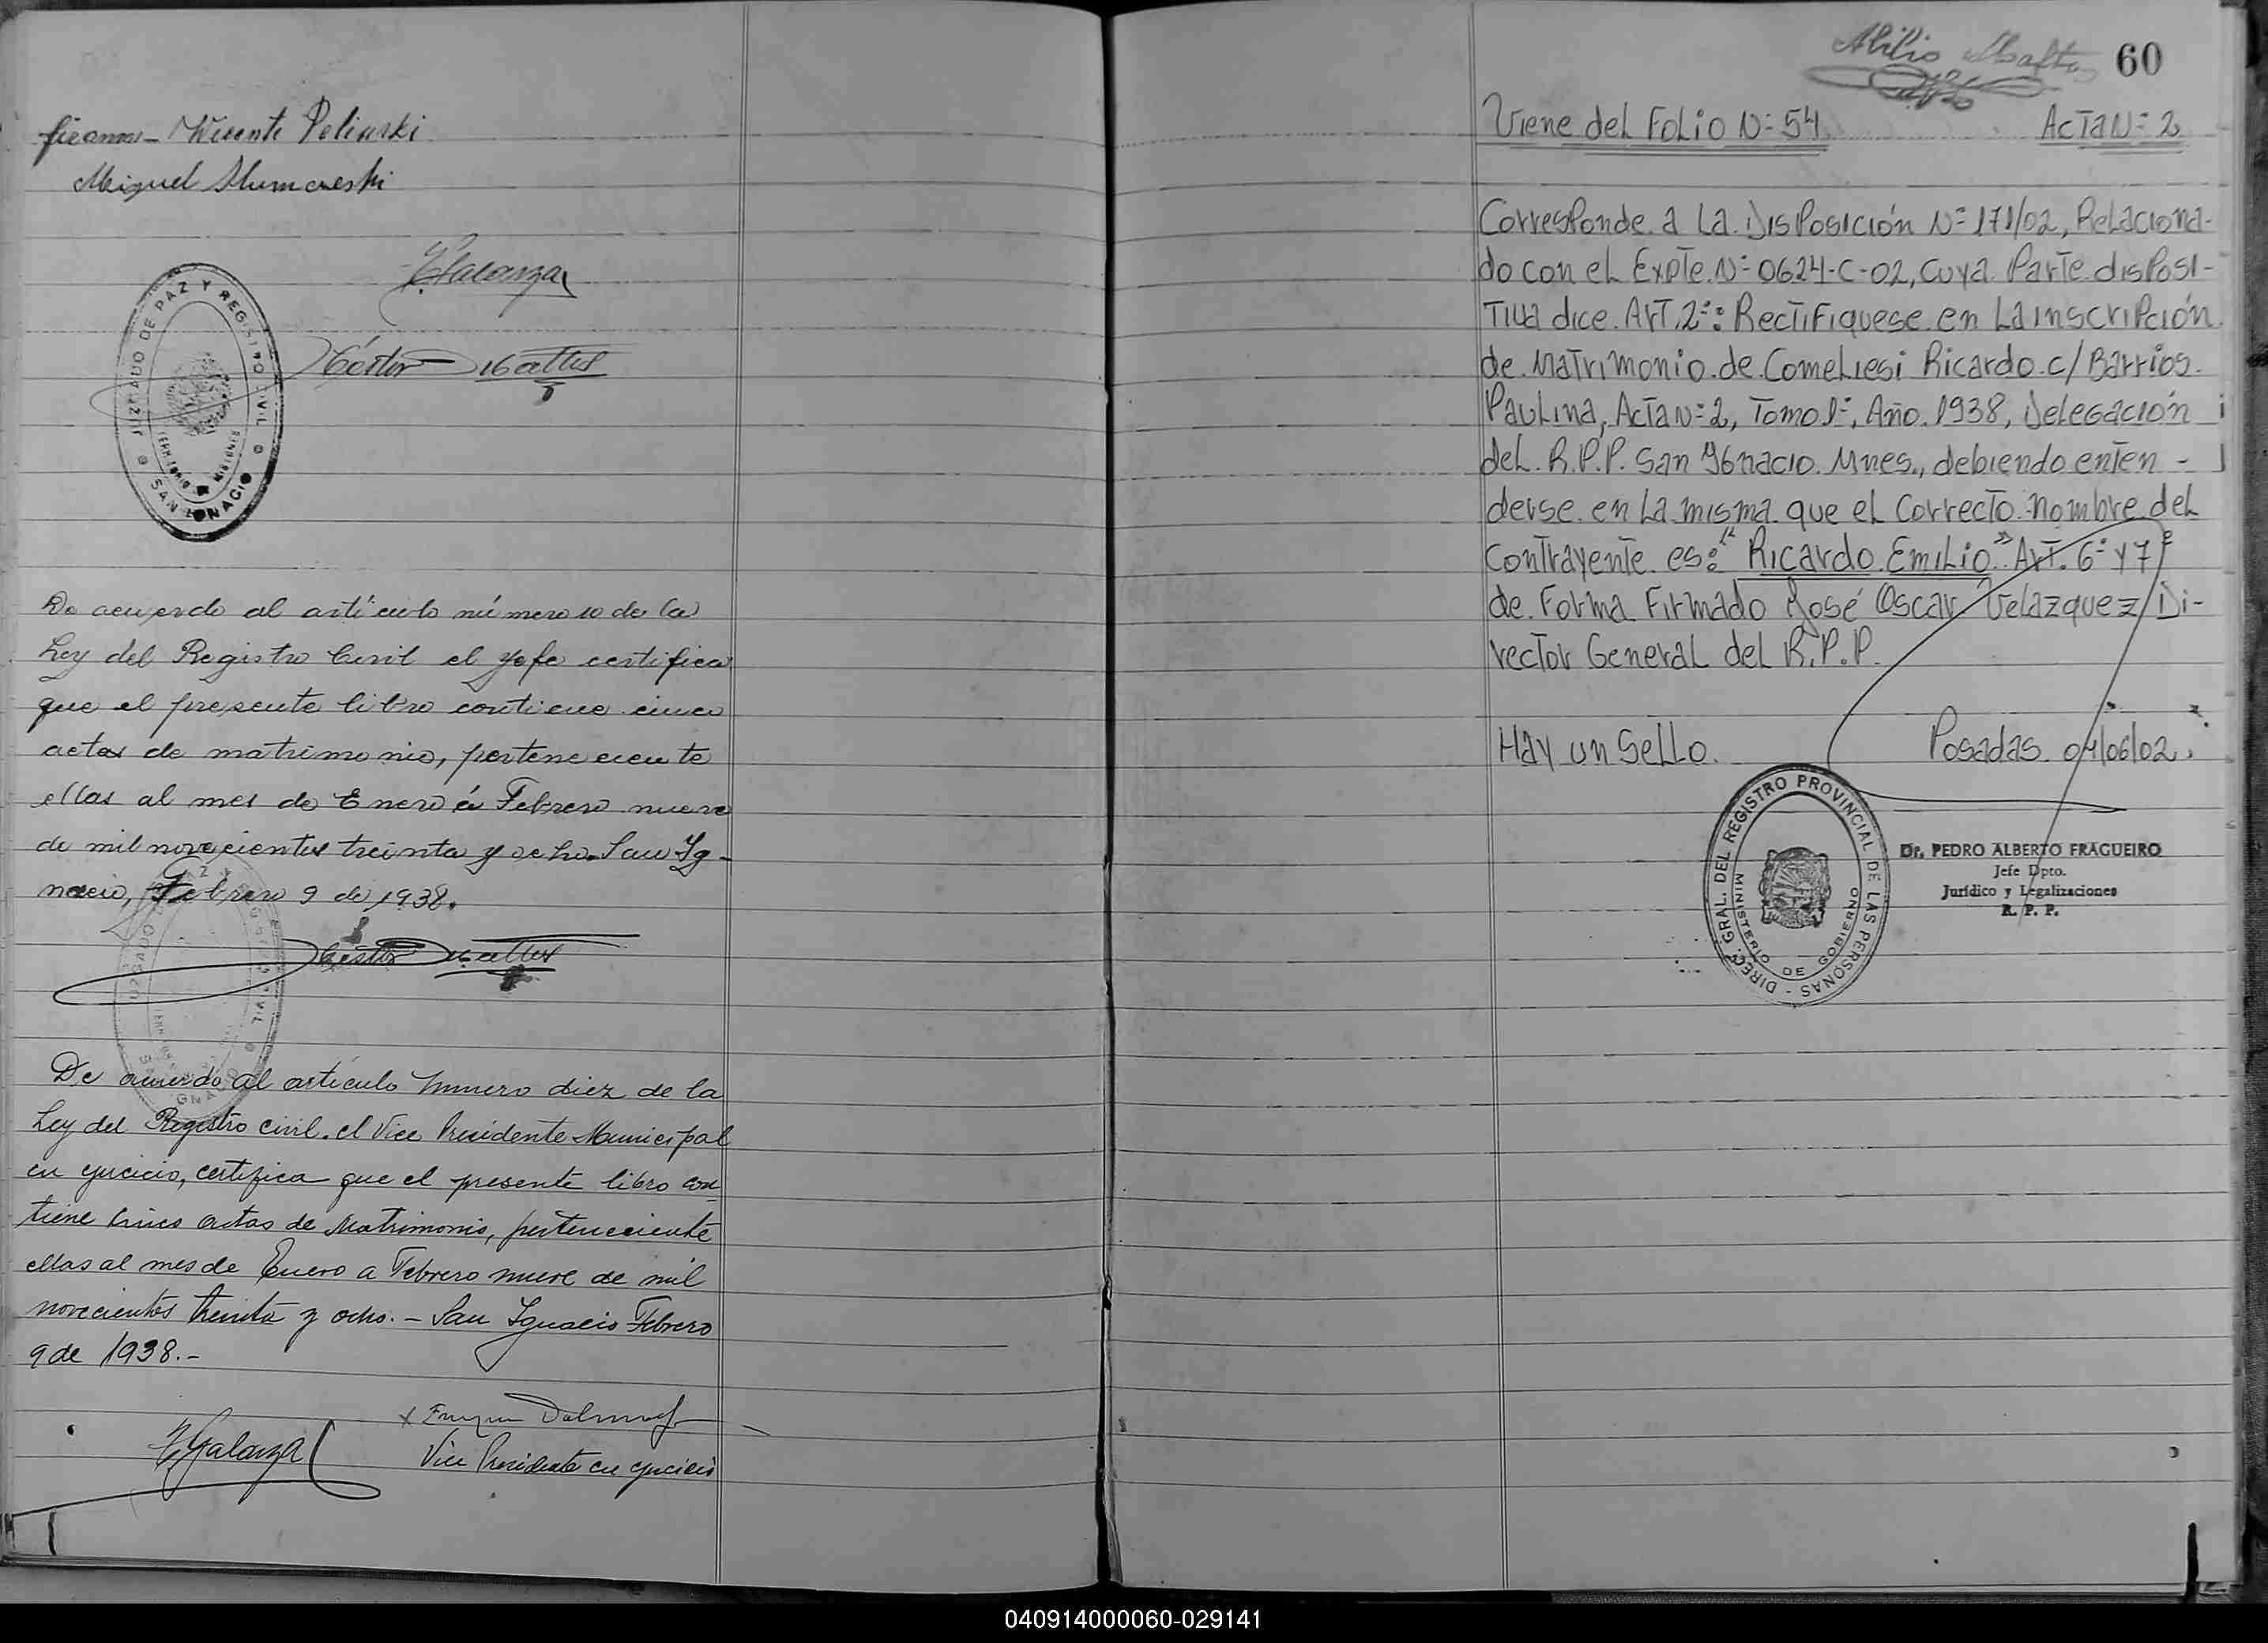 firamos - Vicente Peliuski
Miguel
EGalarza
JUZGADO DE PAZ Y REGISTRO CIVIL
SAN IGNACIO
TERRITORIO DE MISIONES
Héctor
De acuerdo al artículo número 10 de la
Ley del Registro Civil el Jefe certifica
que el presente libro contiene cinco
actas de matrimonio, perteneciente
ellas al mes de Enero á Febrero nueve
de mil novecientos treinta y ocho. San Ig-
nacio, Febrero 9 de 1938.
Héctor
De acuerdo al artículo número diez de la
Ley del Registro civil. el Vice Presidente Municipal
en ejercicio, certifica que el presente libro con-
tiene cinco actas de Matrimonio, perteneciente
ellas al mes de Enero a Febrero nueve de mil
novecientos treinta y ocho. - San Ignacio Febrero
9 de 1938.-
EGalarza
Vice Presidente en ejercicio
Abilio
60
Viene del Folio N=54
Acta N=2
Corresponde a La Disposición N=171/02, Relaciona-
do con el Expte. N=0624-C-02, Cuya Parte disposi-
Tiva dice. Art. 2º: Rectifiquese en La inscripción
de Matrimonio de Comeliesi Ricardo c/ Barrios
Paulina, Acta N=2, Tomo 1º, Año 1938, Delegación
del R.P.P. San Ignacio Mnes., debiendo enten-
derse en La misma que el Correcto nombre del
Contrayente es: "Ricardo Emilio" Art. 6º y 7º
de Forma Firmado José Oscar Velazquez Di-
rector General del R.P.P.
Hay un Sello.
Posadas 04/06/02.
DIREC. GRAL. DEL REGISTRO PROVINCIAL DE LAS PERSONAS -
MINISTERIO DE GOBIERNO
Dr. PEDRO ALBERTO FRAGUEIRO
Jefe Dpto.
Jurídico y Legalizaciones
R. P. P.
040914000060-029141